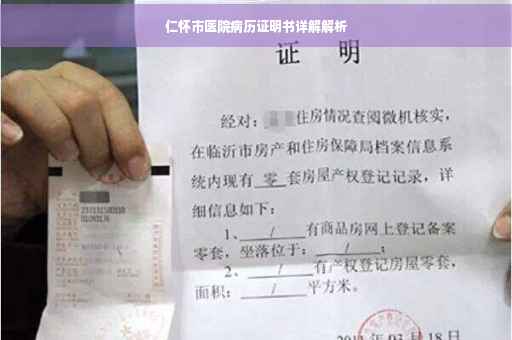 仁怀市医院病历证明书详解解析
证 明
经对：住房情况查阅微机核实，
在临沂市房产和住房保障局档案信息系
统内现有 零 套房屋产权登记记录，详
细信息如下：
1、 / 有商品房网上登记备案
零套，坐落位于： / ；
2、 / 有产权登记房屋零套，
面积： / 平方米。